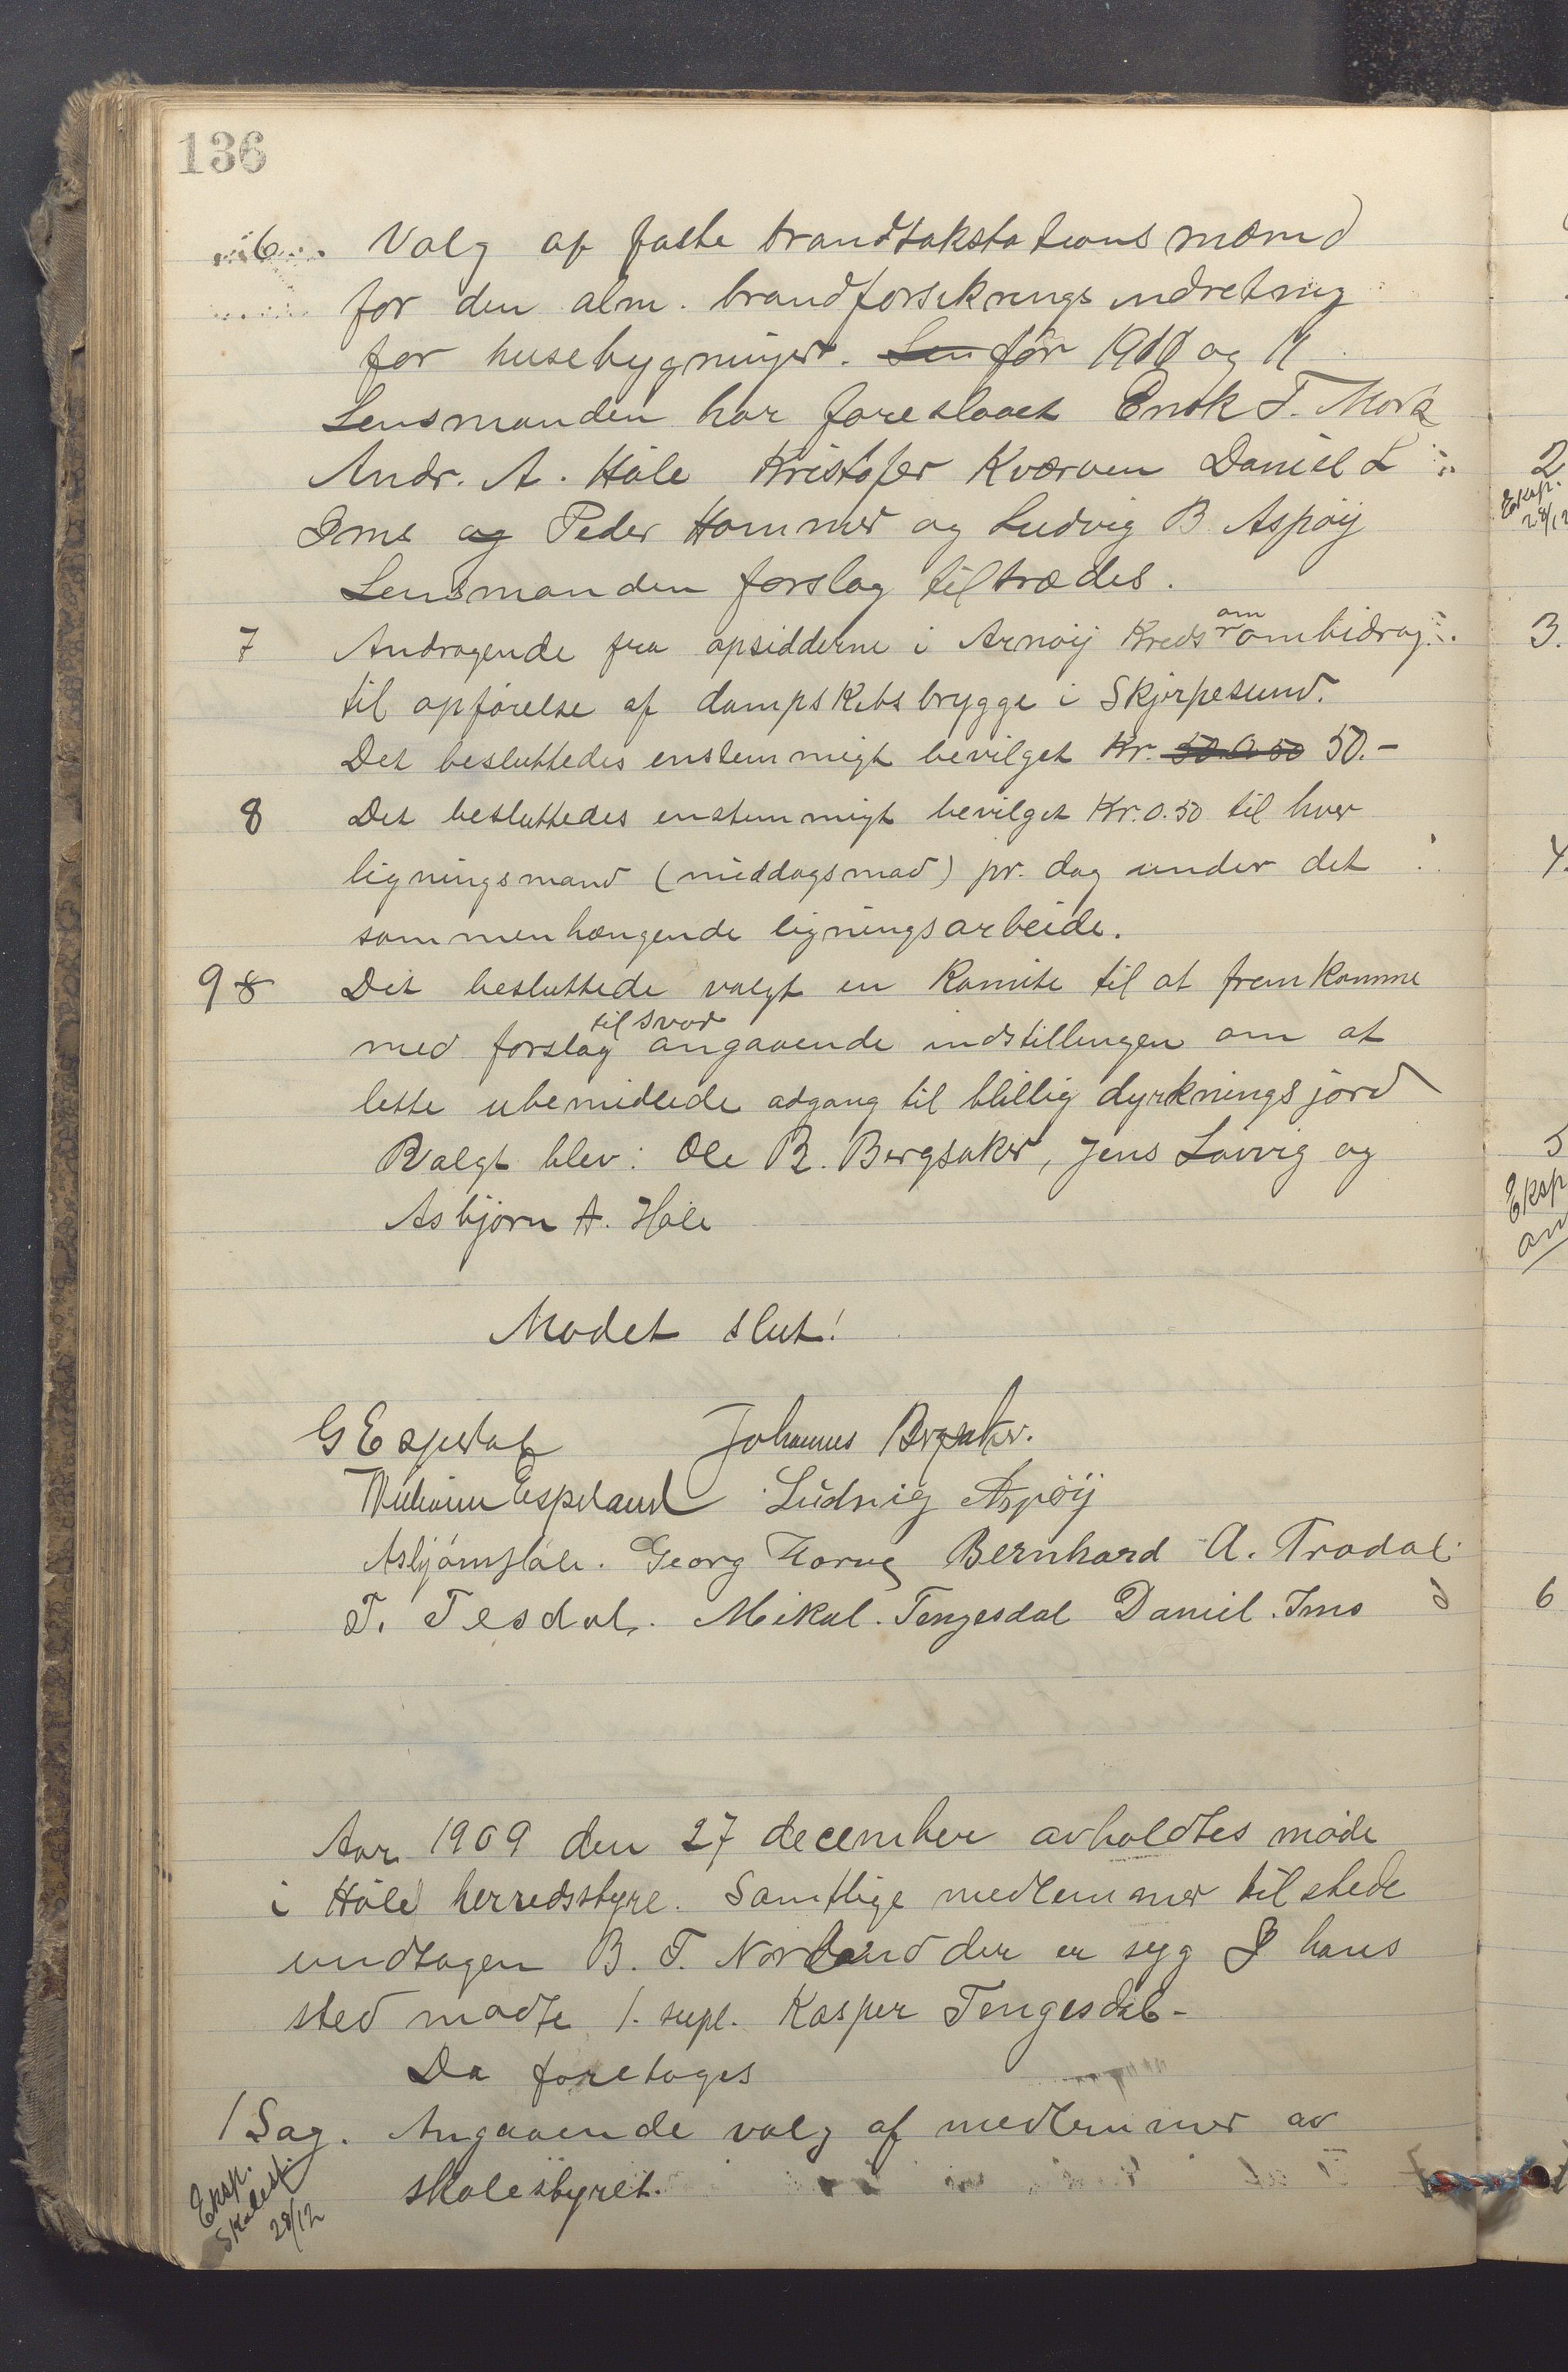 136
6. Valg af faste brandtakstationsmænd
for den alm. brandforsikringsindretning
for husebygninger. Len for 1910 og 11
Lensmanden har foreslaaet Enok T. Mork
Andr. A. Høle Kristofer Kværven Daniel L
Ims og Peder Hommer og Ludvig B Aspøy
Lensmanden forslag tiltrædes.
7 Andragende fra opsidderne i Arnøy Kreds om bidrag
til opførelse af dampskibsbrygge i Skjørpesund.
Det besluttedes enstemmigt bevilget Kr. 50.-
8 Det besluttedes enstemmigt bevilget Kr. 0.50 til hver
ligningsmand (middagsmad) pr. dag under det
sammenhængende ligningsarbeide.
9 8 Det besluttede valgt en Komite til at fremkomme
til svar
med forslag angaaende indstillingen om at
lette ubemidlede adgang til billig dyrkningsjord
Valgt blev: Ole B. Bergsaker, Jens Løvvig og
Asbjørn A. Høle
Mødet slut!
G Espedal Johannes Bergsaker.
Espeland Ludvig Aspøy
Asbjørn Høle. Georg Bernhard A. Trodal
T. Tesdal. Mikal. Tengesdal Daniel. Ims
Aar 1909 den 27 december avholdtes møde
i Høle herredsstyre. Samtlige medlemmer tilstede
undtagen B. T. Norland der er syg I hans
sted mødte 1. supl. Kasper Tengesdal-
Da foretoges
1 Sag. Angaaende valg af medlemmer av
skolestyret.
Eksp.
Skolest.
28/12
2
Eksp.
28/12
3.
4.
5
Eksp
6